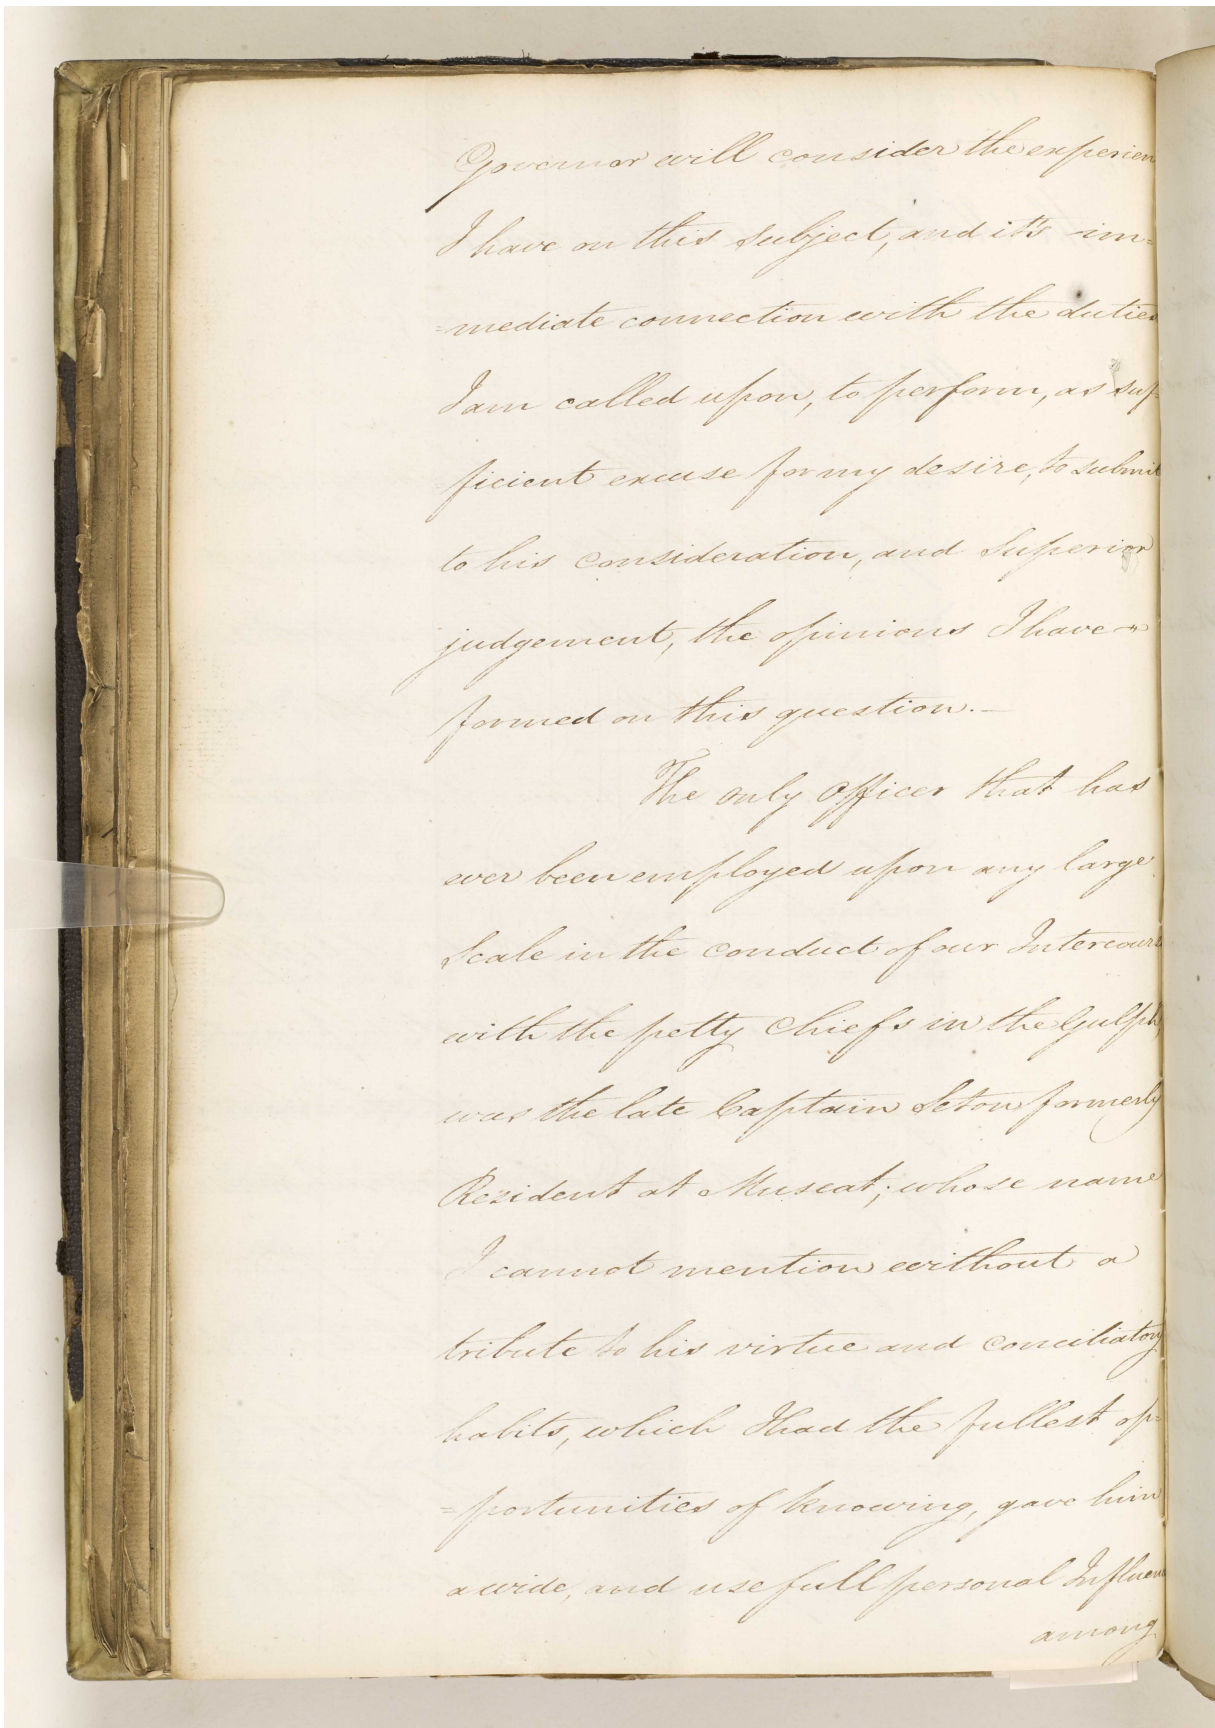 Governor will consider the experien
I have on this subject, and it's im=
=mediate connection with the duties
I am called upon, to perform, as suf=
=ficient excuse for my desire, to submit
to his consideration, and Superior
judgement, the opinions I have
formed on this question. —
The only Officer that has
ever been employed upon any large
Scale in the conduct of our Intercourse
with the petty Chiefs in the Gulph,
was the late Captain Seton formerly
Resident at Muscat; whose name
I cannot mention without a
tribute to his virtue and conciliatory
habits, which I had the fullest op=
=portunities of knowing, gave him
a wide, and usefull personal Influen
among